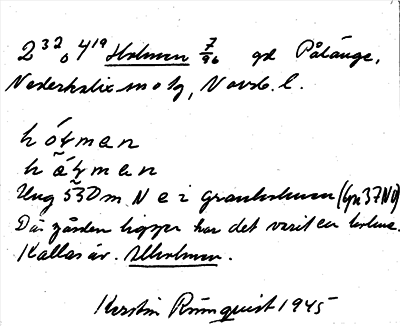 2 32 o 4 19 Holmen 7/96 gd Pålänge,
Nederkalix sn o tg, Norrb. l.
hó̰ɫmen
há̰ɫmen
Ung 53D m N e i Granholmen (Gn 37 NV)
Där gården ligger har det varit en holme.
Kallas äv. Ulholmen.
Kerstin Rönnquist 1945